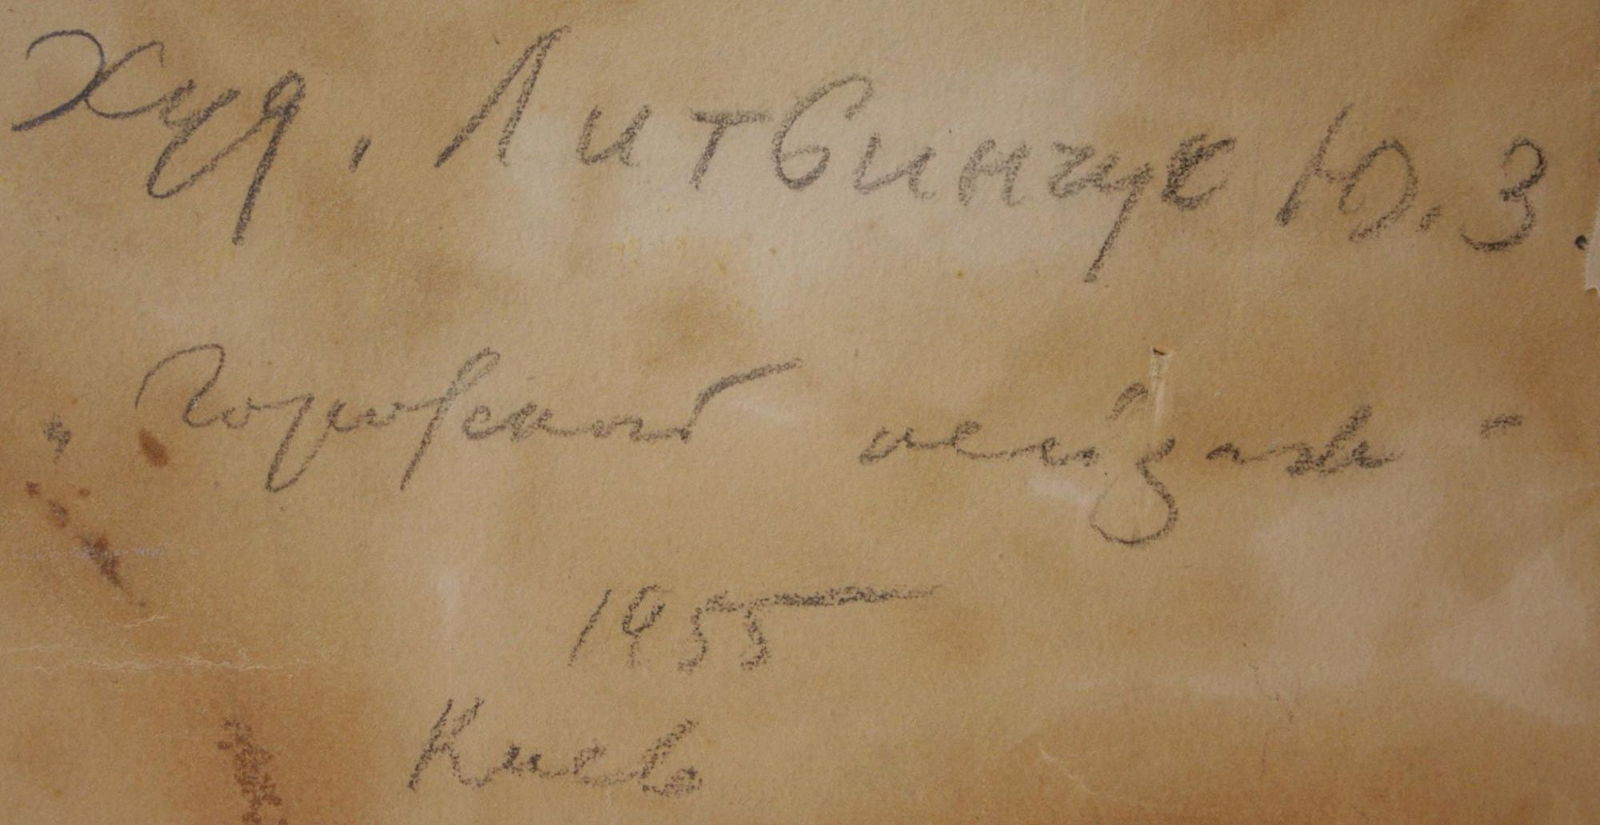 Худ. Литвинчук Ю. З.
„Городской пейзаж"
1955
Киев